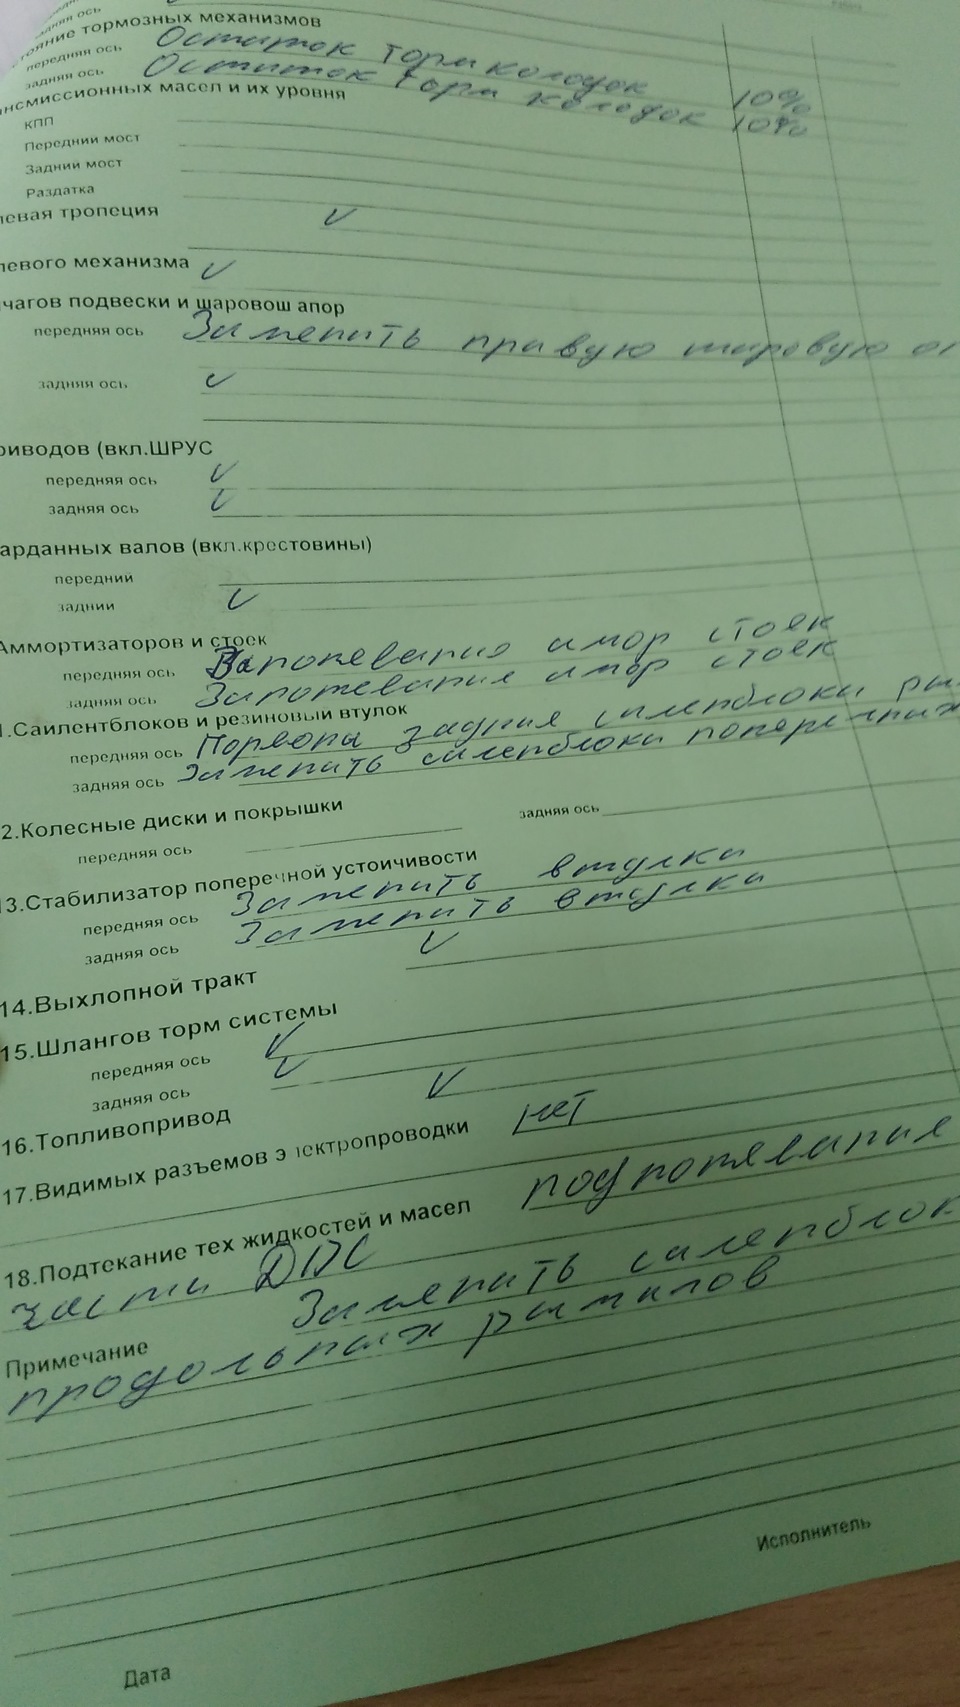 задняя ось
стояние тормозных механизмов
передняя ось Остаток торм колодок 10%
задняя ось Остаток торм колодок 10%
нсмиссионных масел и их уровня
КПП
Передний мост
Задний мост
Раздатка
левая тропеция ✓
левого механизма ✓
чагов подвески и шаровош апор
передняя ось Заменить правую шаровую оп
задняя ось ✓
риводов (вкл.ШРУС
передняя ось ✓
задняя ось ✓
арданных валов (вкл.крестовины)
передний
задний ✓
Аммортизаторов и стоек
передняя ось Запотевания амор стоек
задняя ось Запотевания амор стоек
1.Саилентблоков и резиновый втулок
передняя ось Порвоны задния силенблоки ры
задняя ось Заменить силенблоки поперечных
2.Колесные диски и покрышки
передняя ось задняя ось
13.Стабилизатор поперечной устоичивости
передняя ось Заменить втулки
задняя ось Заменить втулки
14.Выхлопной тракт ✓
15.Шлангов торм системы
передняя ось ✓
задняя ось ✓
16.Топливопривод ✓
17.Видимых разъемов электропроводки нет
18.Подтекание тех жидкостей и масел подпотевания
части ДВС
Примечание Заменить саленблок
продольных рычагов
Исполнитель
Дата